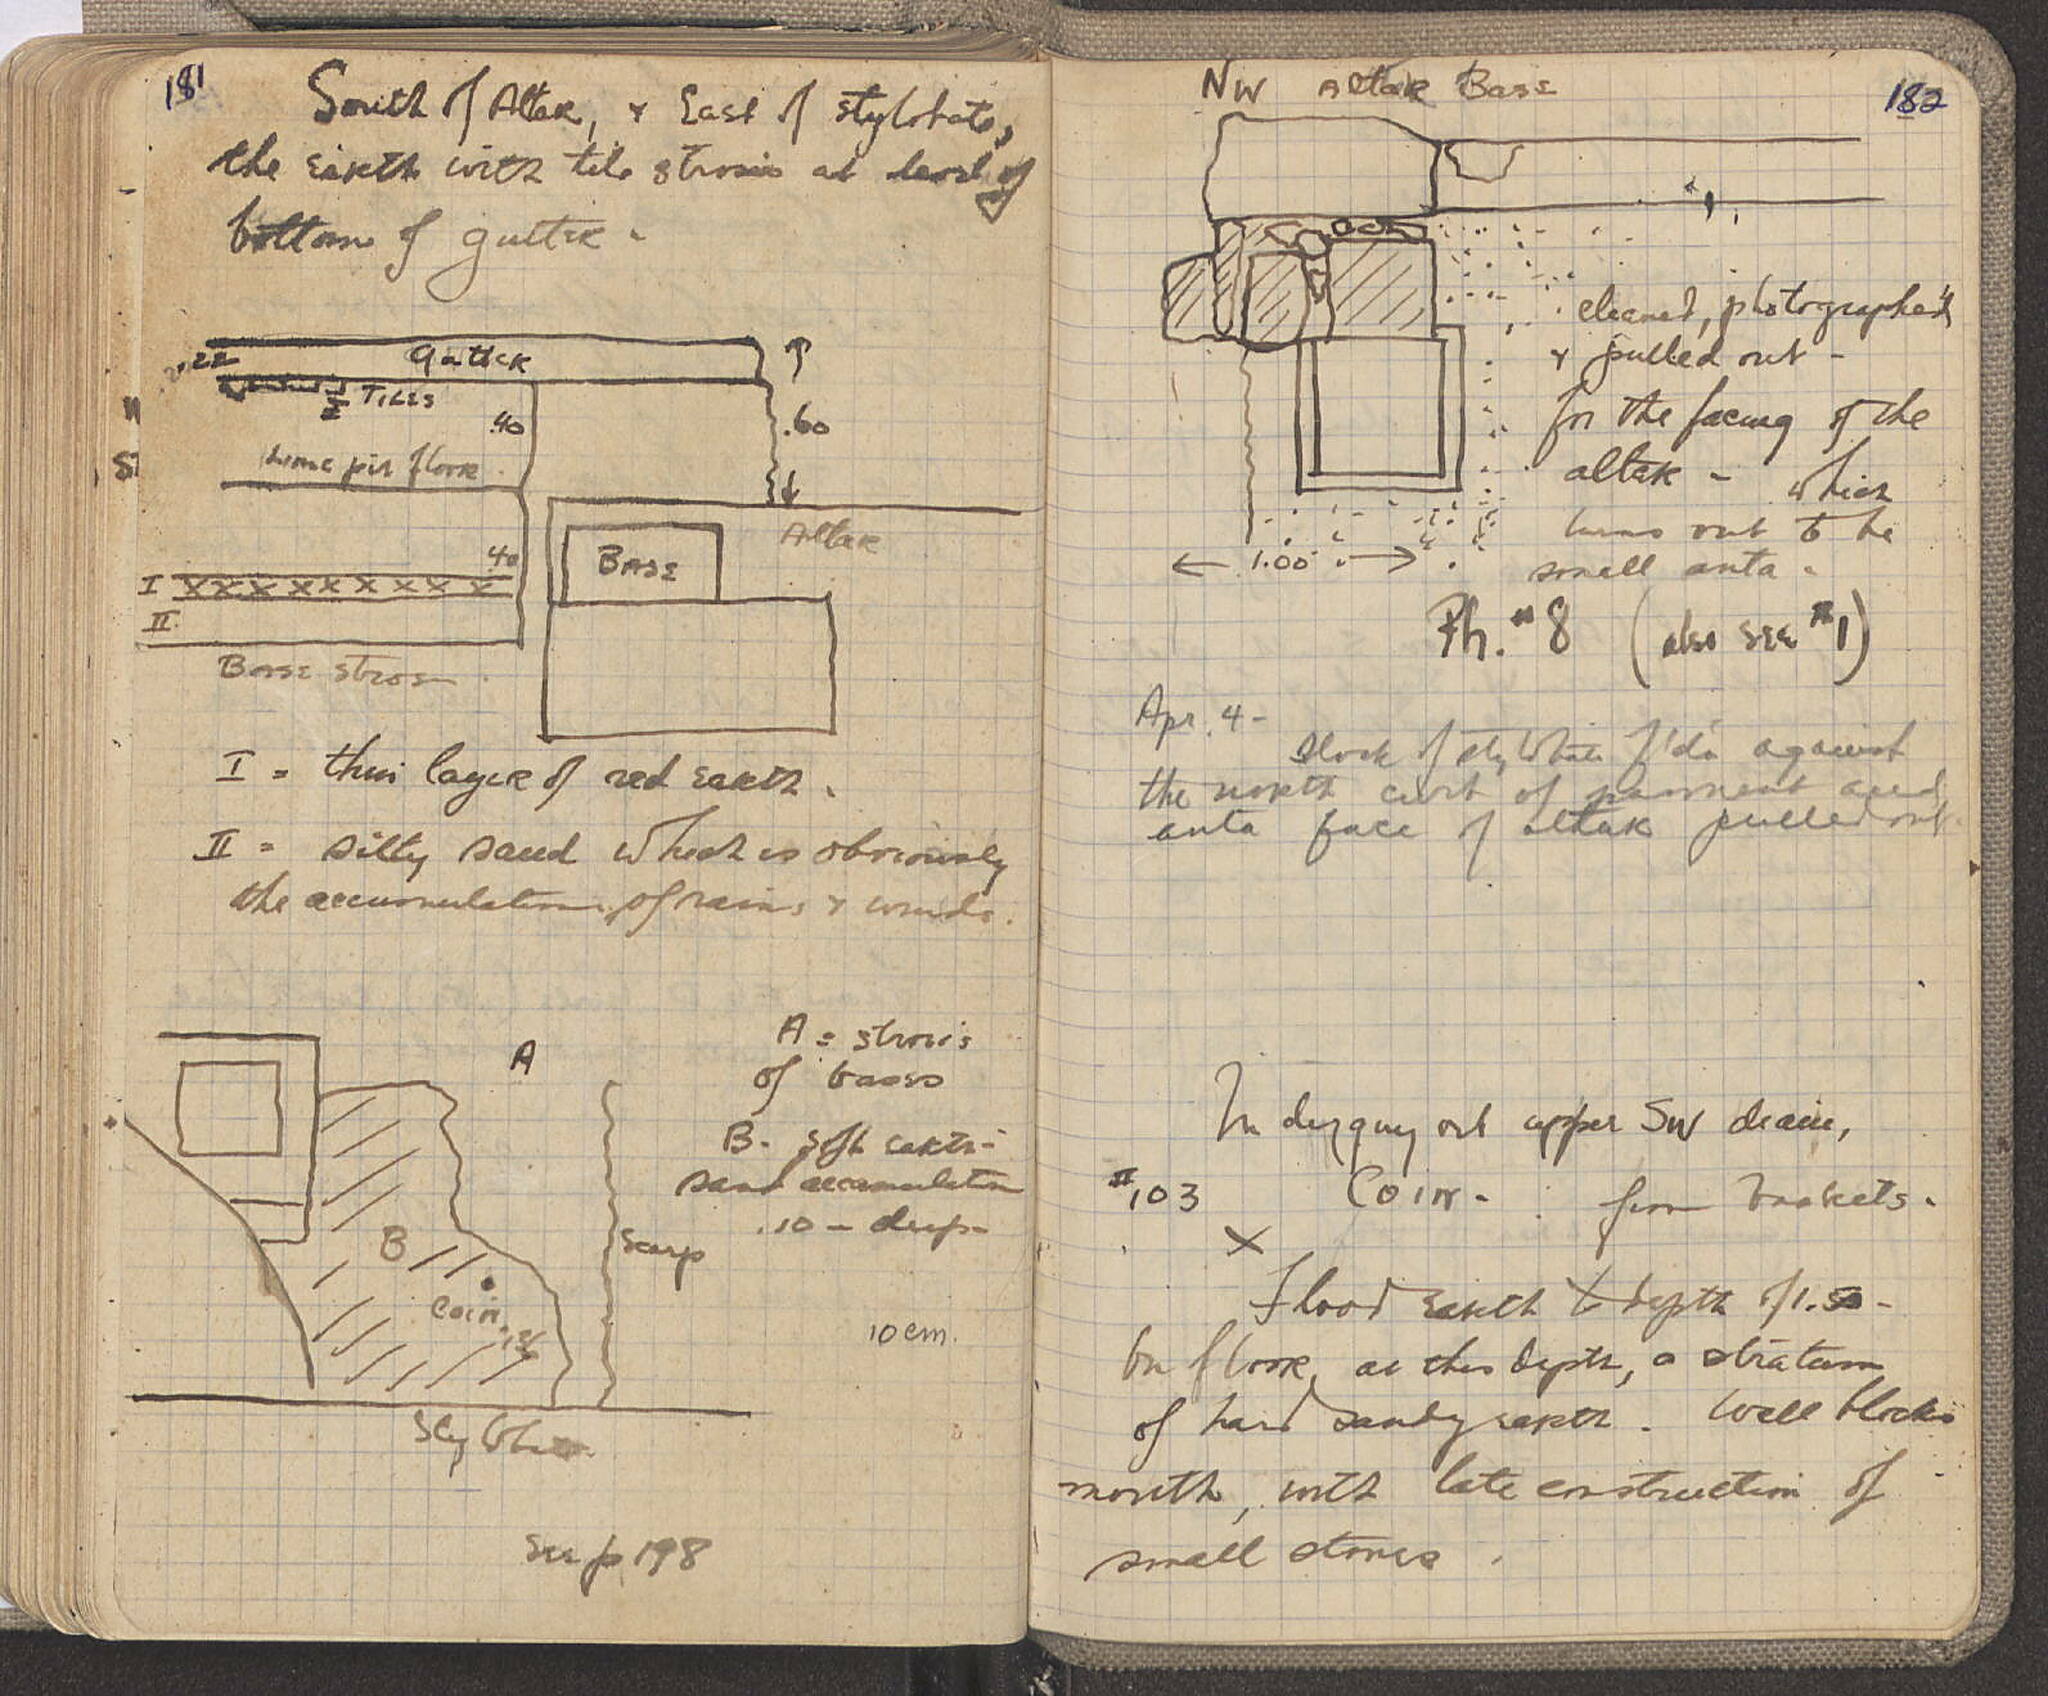 181
South of Altar, & East of stylobate,
the earth with tile strosis at level of
bottom of gutter -
.22
Gutter
TILES
.40
.60
Lime pit floor
.40
Altar
BASE
I
II
BASE stros
I = thin layer of red earth.
II = silty sand which is obviously
the accumulation of rains & winds.
A
A = strosis
of bases
B - soft earth -
sand accumulation
.10 - deep -
B
Scarp
Coin
10 cm.
Stylobate
See p. 198
NW Altar Base
182
cleaned, photographed
& pulled out -
for the facing of the
altar - which
turns out to be
small anta.
1.00
Ph. #8 (also see #1)
Apr. 4 -
Block of stylobate f'd against
the north curb of pavement and
anta face of altar pulled out.
In digging out upper SW drain,
#103 Coin - from baskets.
X
Flood earth to depth of 1.50 -
On floor, at this depth, a stratum
of hard sandy earth. Well blocks
mouth, with late construction of
small stones.